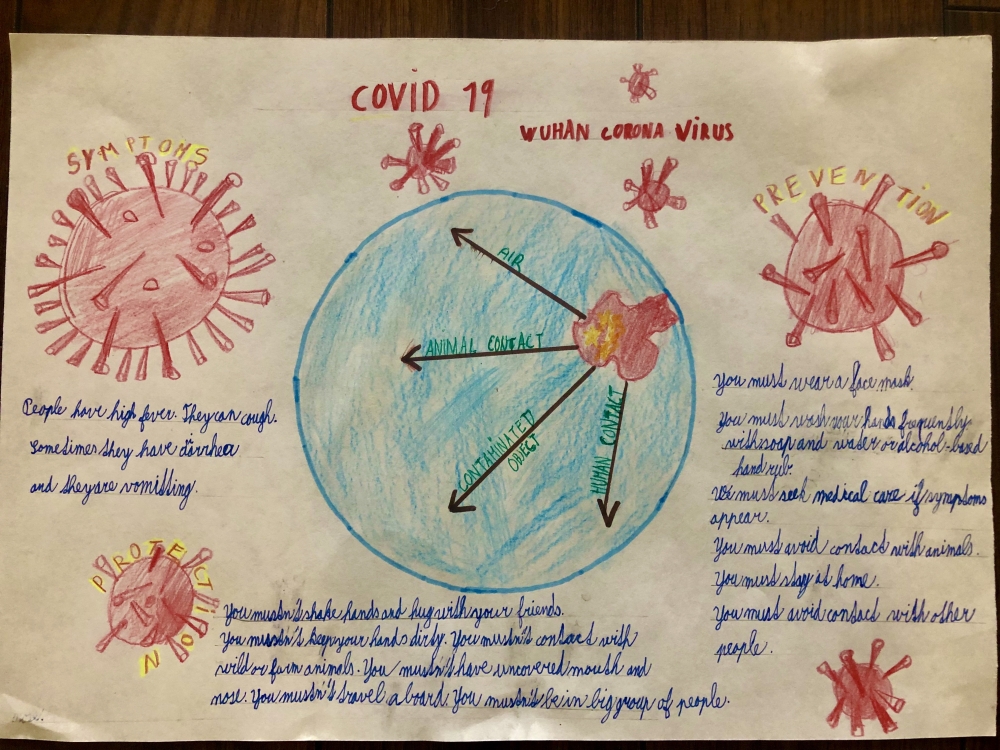 COVID 19
WUHAN CORONA VIRUS
SYMPTOMS
People have high fever. They can cough.
Sometimes they have dirrhea
and they are vomitting.
AIR
ANIMAL CONTACT
CONTAMINATED
OBJECT
HUMAN CONTACT
PREVENTION
You must wear a face mask.
You must wash your hands frequently
with soap and water or alcohol-based
hand rub
We must seek medical care if symptoms
appear.
You must avoid contact with animals.
You must stay at home.
You must avoid contact with other
people.
PROTECTION
You mustn't shake hands and hug with your friends.
You mustn't keep your hands dirty. You mustn't contact with
wild or farm animals. You mustn't have uncovered mouth and
nose. You mustn't travel aboard. You mustn't be in big group of people.